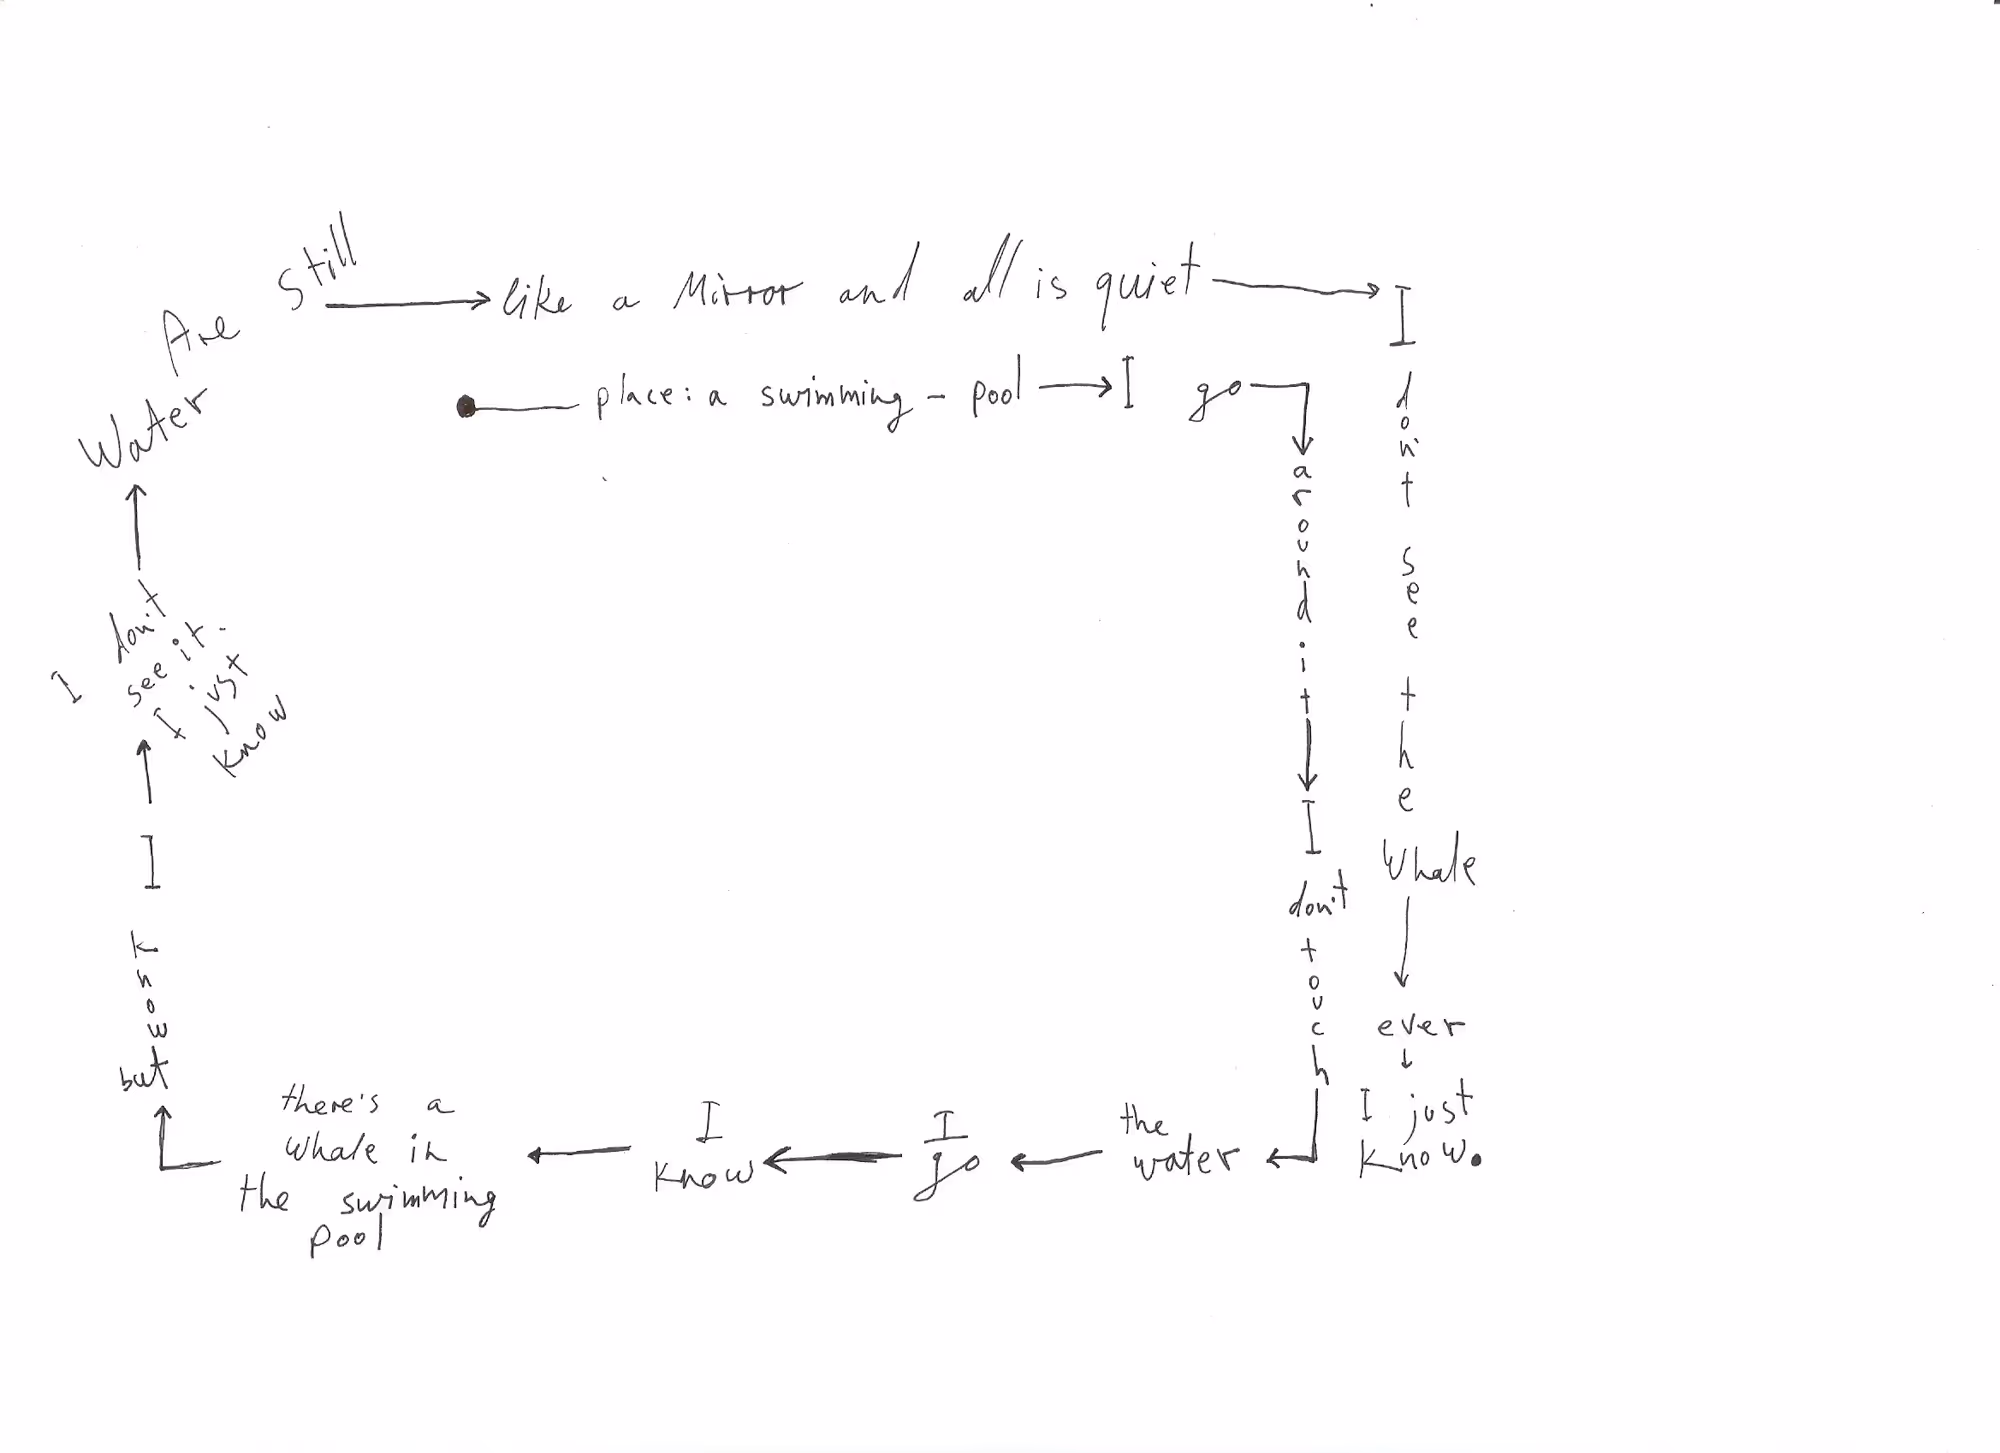 place: a swimming-pool
I go
around it
I
don't
touch
the
water
I
go
I
know
there's a
whale in
the swimming
pool
but
know
I
I don't
see it.
I just
know
Water
Are
Still
like a Mirror and all is quiet
I
don't see the
Whale
ever
I just
know.